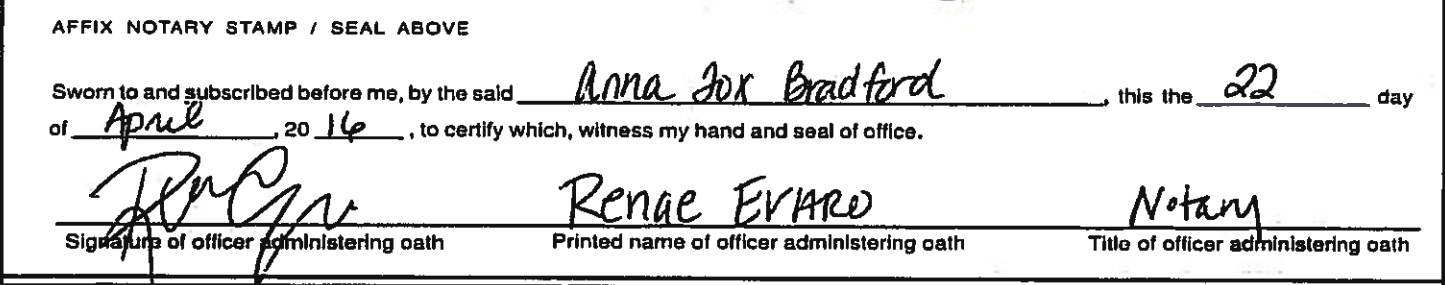 AFFIX NOTARY STAMP / SEAL ABOVE
Sworn to and subscribed before me, by the said Anna Fox Bradford, this the 22 day
of April, 20 16, to certify which, witness my hand and seal of office.
Renae EVARO Notary
Signature of officer administering oath Printed name of officer administering oath Title of officer administering oath